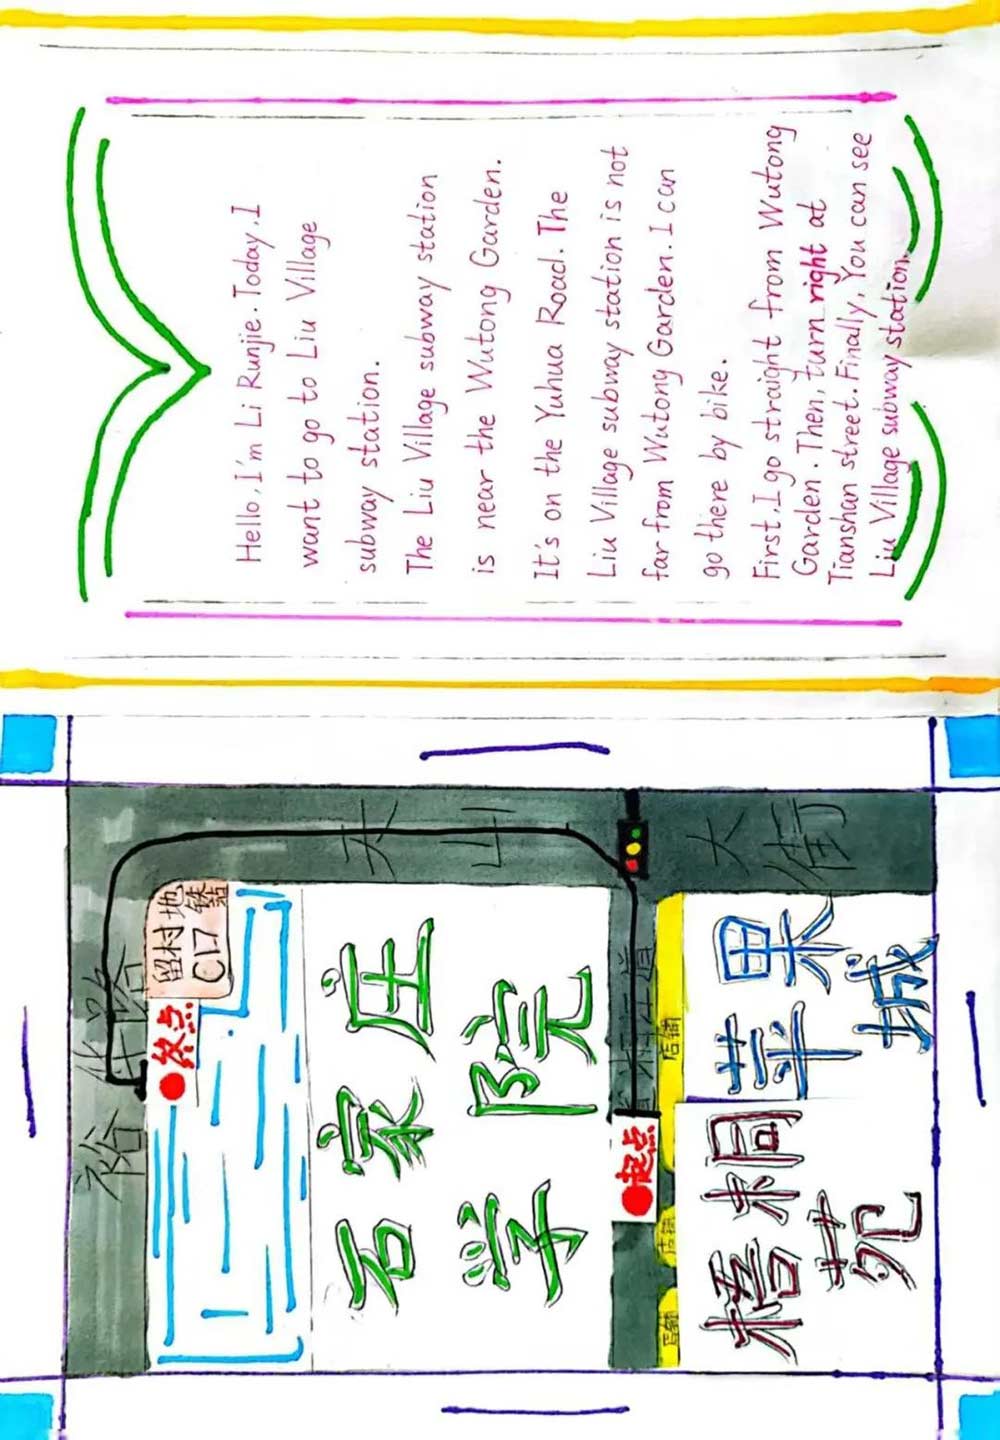 裕华路
终点
留村地铁站
C口
天山大街
石家庄
学院
起点
店铺
店铺
店铺
梧桐苑
苹果城
Hello, I'm Li Runjie. Today, I
want to go to Liu Village
subway station.
The Liu Village subway station
is near the Wutong Garden.
It's on the Yuhua Road. The
Liu Village subway station is not
far from Wutong Garden. I can
go there by bike.
First, I go straight from Wutong
Garden. Then, turn right at
Tianshan street. Finally, You can see
Liu Village subway station.